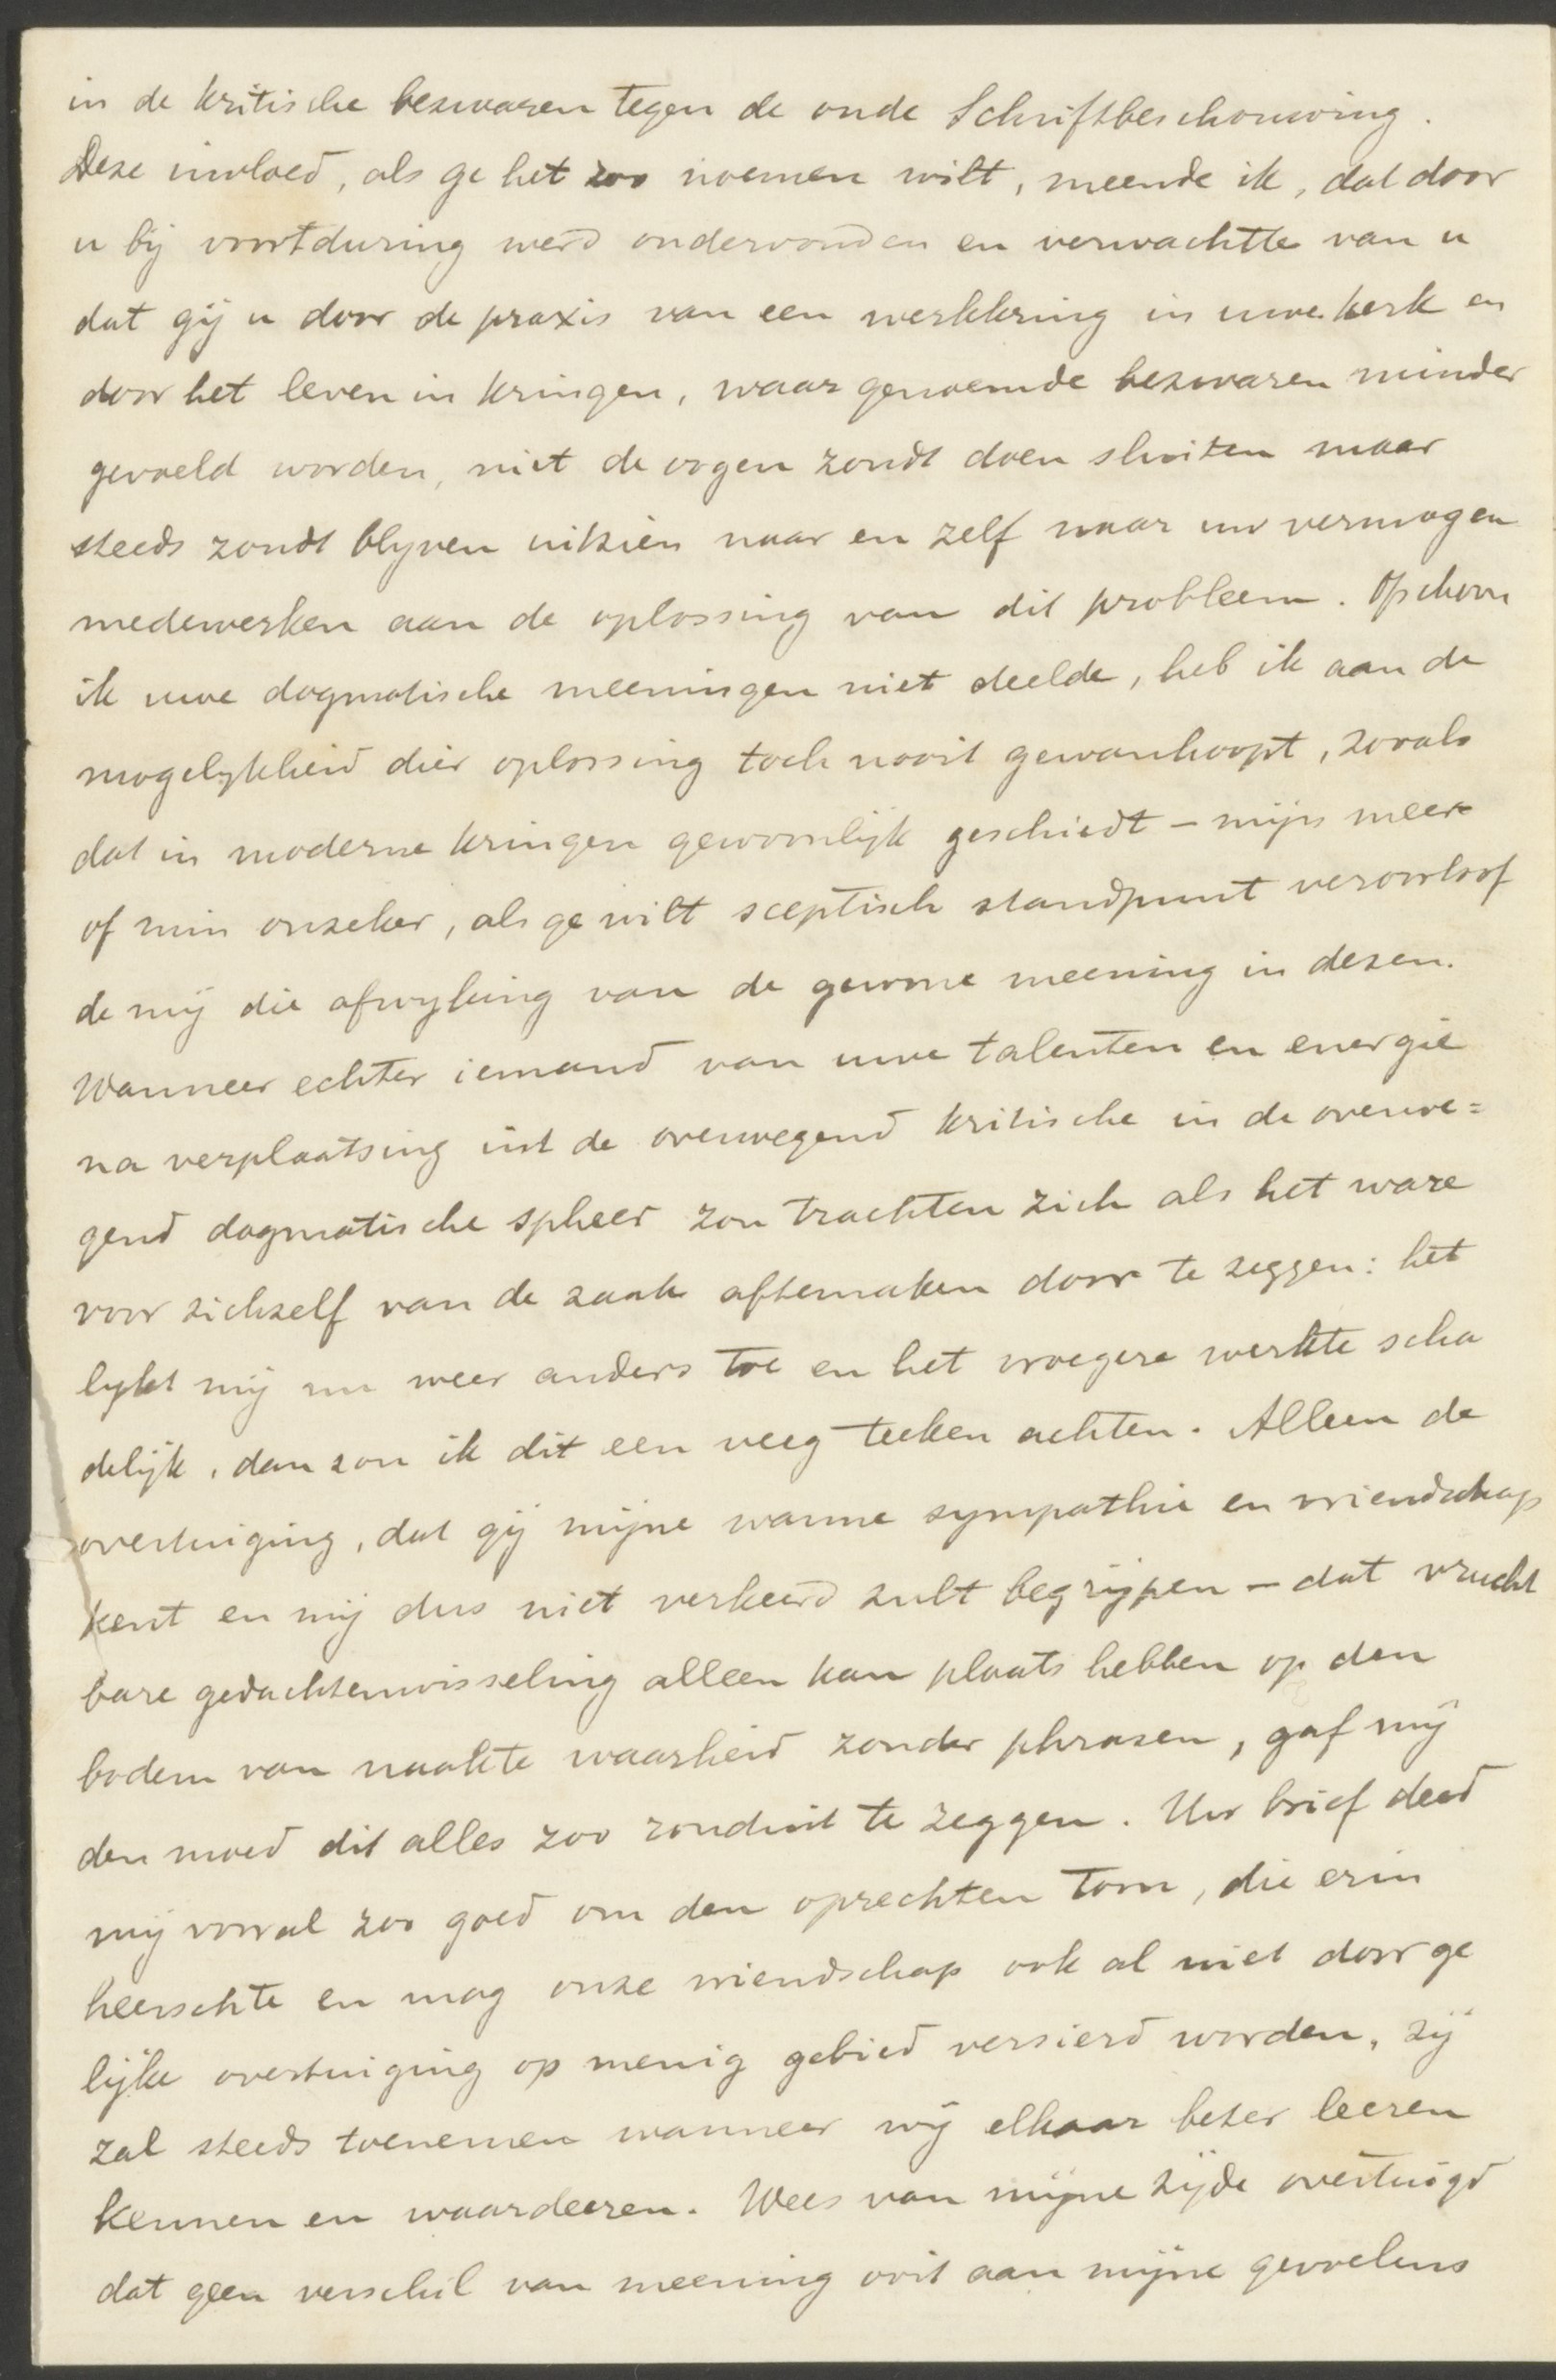 in de kritische bezwaren tegen de oude Schriftbeschouwing.
Deze invloed, als ge het zoo noemen wilt, meende ik, dat door
u bij voortduring werd ondervonden en verwachtte van u
dat gij u door de praxis van een werkkring in uwe kerk en
door het leven in kringen, waar genoemde bezwaren minder
gevoeld worden, niet de oogen zoudt doen sluiten maar
steeds zoudt blyven uitzien naar en zelf naar uw vermogen
medewerken aan de oplossing van dit probleem. Ofschoon
ik uwe dogmatische meeningen niet deelde, heb ik aan de
mogelykheid dier oplossing toch nooit gewanhoopt, zooals
dat in moderne kringen gewoonlijk geschiedt – mijn meer
of min onzeker, als ge wilt sceptisch standpunt veroorloof
de mij die afwyking van de gewone meening in dezen.
Wanneer echter iemand van uwe talenten en energie
na verplaatsing uit de overwegend kritische in de overwe=
gend dogmatische spheer zou trachten zich als het ware
voor zichzelf van de zaak aftemaken door te zeggen: het
lykt mij nu weer anders toe en het vroegere werkte scha
delijk, dan zou ik dit een veeg teeken achten. Alleen de
overtuiging, dat gij mijne warme sympathie en vriendschap
kent en mij dus niet verkeerd zult begrijpen – dat vrucht
bare gedachtenwisseling alleen kan plaats hebben op den
bodem van naakte waarheid zonder phrasen, gaf mij
den moed dit alles zoo ronduit te zeggen. Uw brief deed
mij vooral zoo goed om den oprechten toon, die erin
heerschte en mag onze vriendschap ook al niet door ge
lijke overtuiging op menig gebied versierd worden, zij
zal steeds toenemen wanneer wij elkaar beter leeren
kennen en waardeeren. Wees van mijne zijde overtuigd
dat geen verschil van meening ooit aan mijne gevoelens